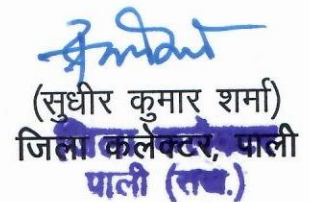 (सुधीर कुमार शर्मा)
जिला कलेक्टर, पाली
पाली (राज.)